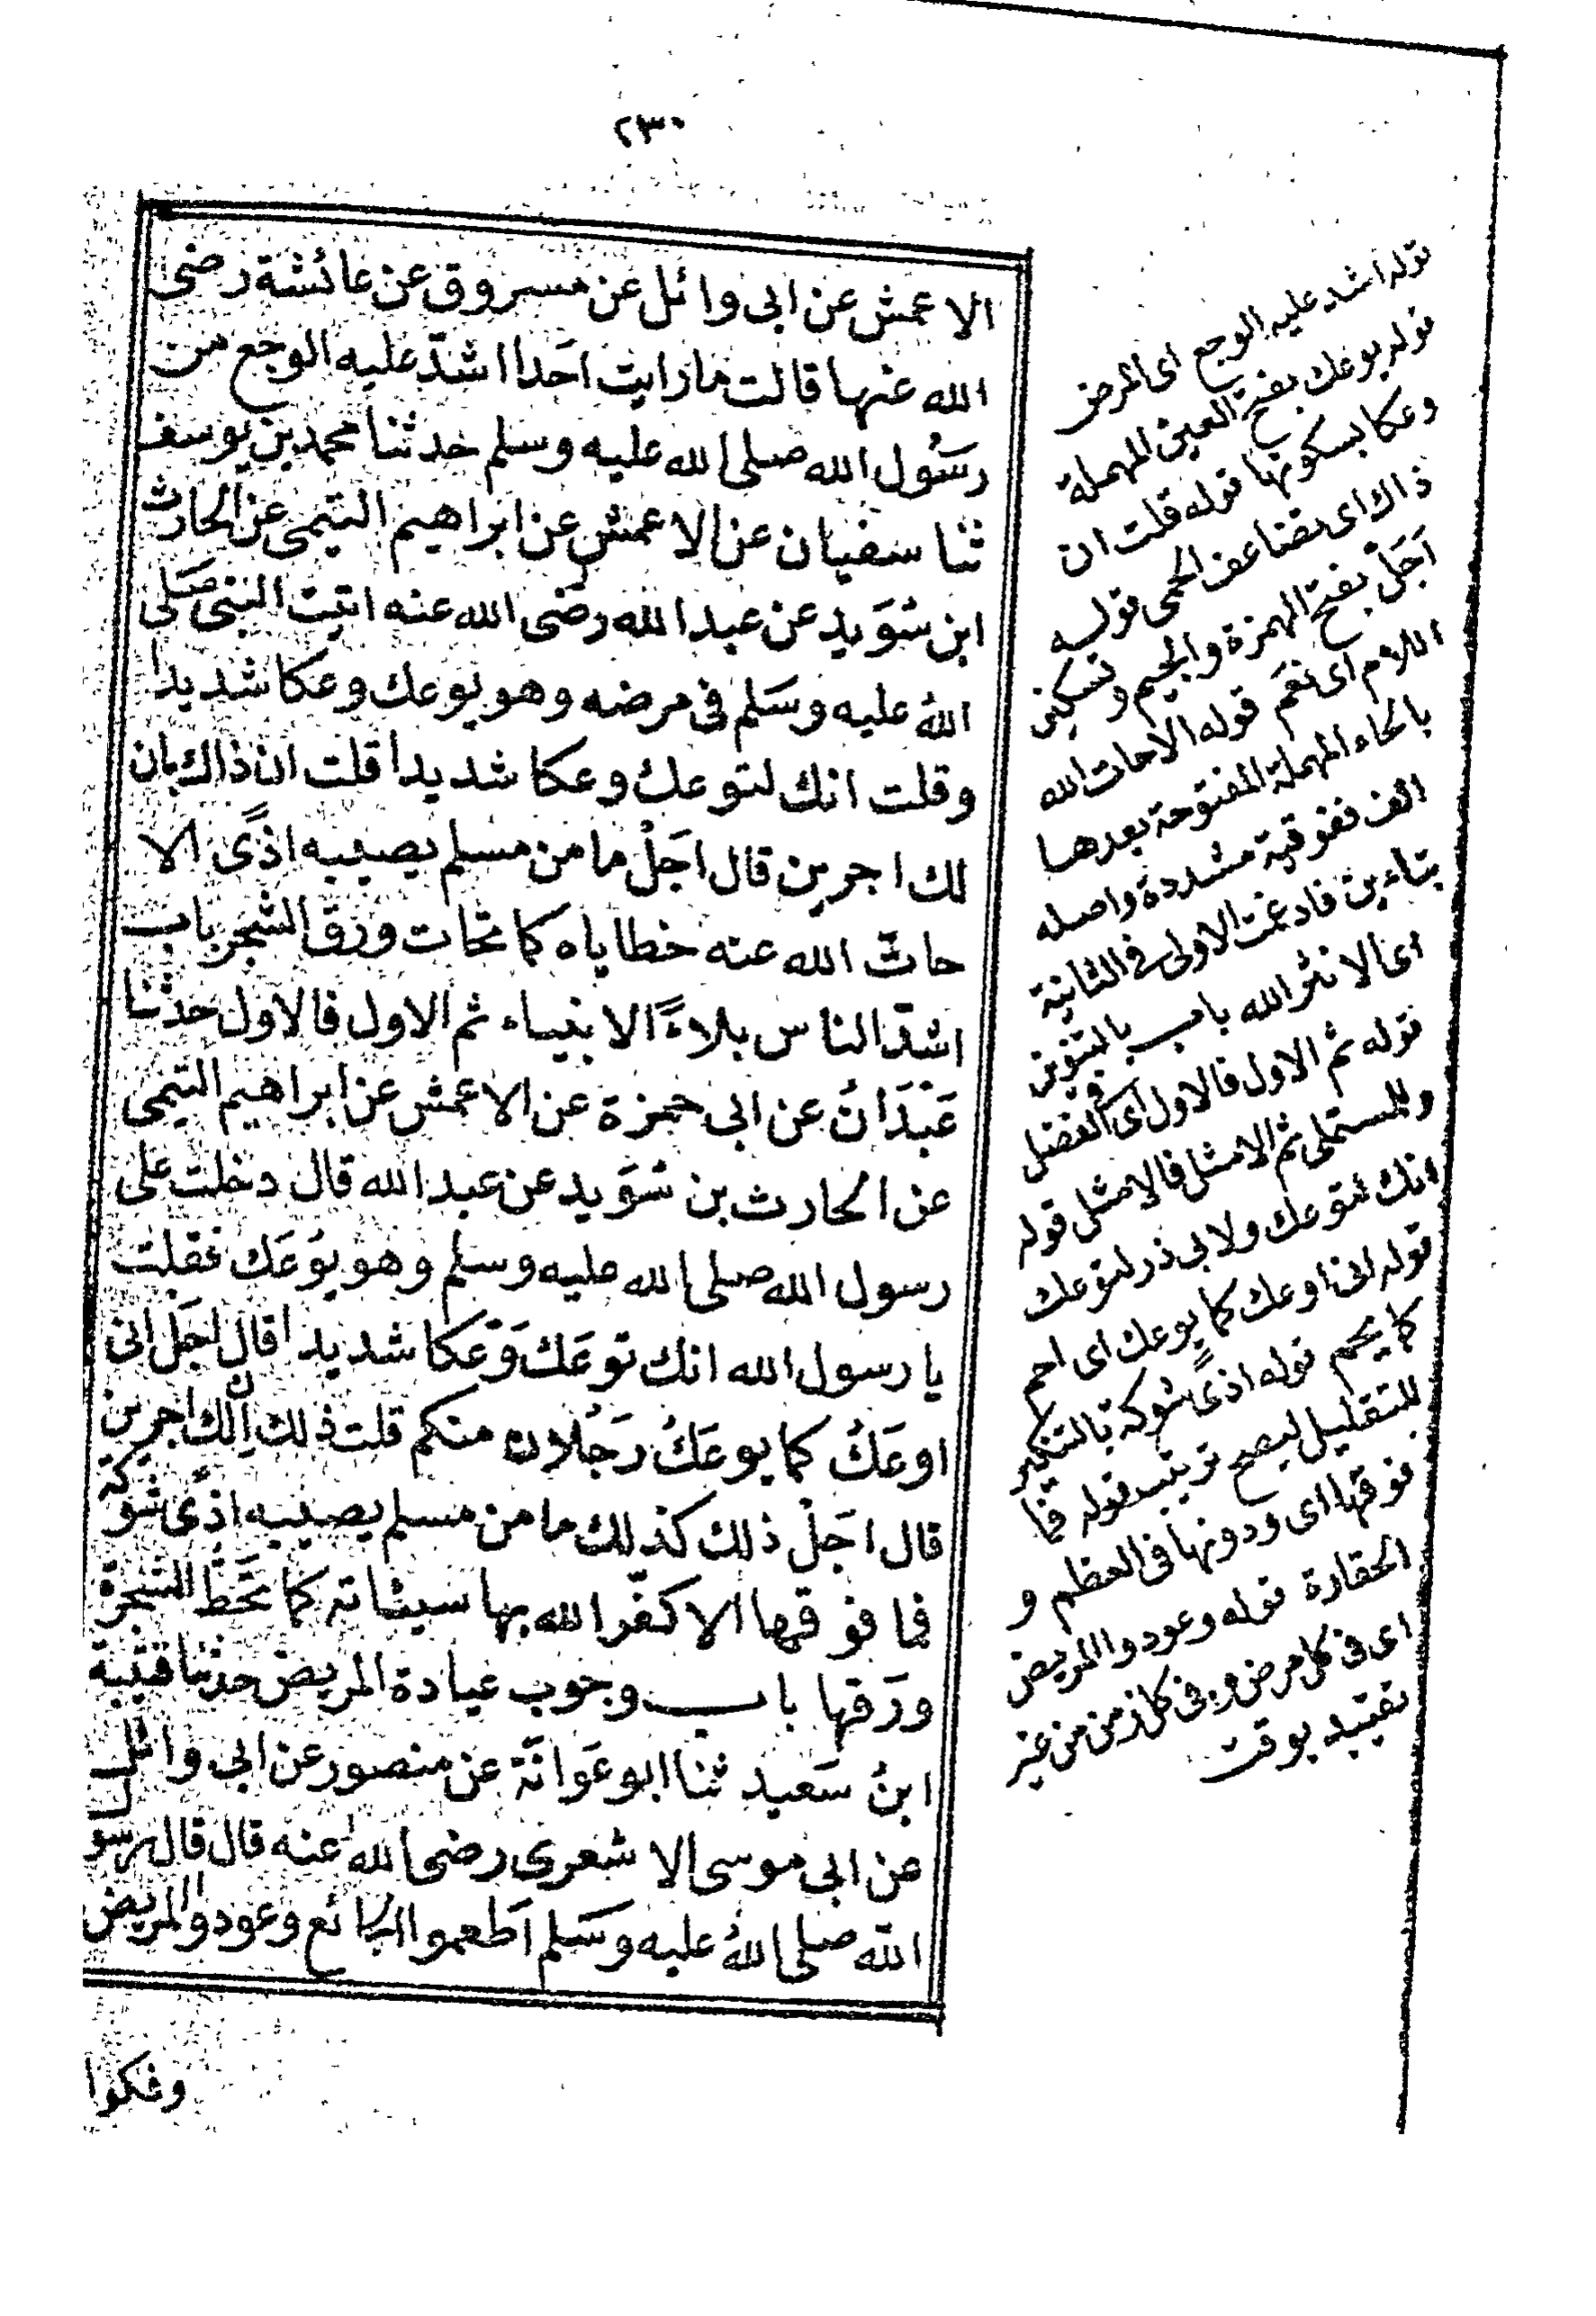 ٢٣٠
الاعمش عن ابى وائل عن مسروق عن عائشة رضى
الله عنها قالت ما رايت احَدا اشدّ عليه الوجع من
رسَول الله صلى الله عليه وسلم حدثنا محمد بن يوسف
ثنا سفيان عن الاعمش عن ابراهيم التيمى عن الحارث
ابن سُوَيد عن عبد الله رضى الله عنه اتيت النبى صَلى
اللهُ عليه وسَلم فى مرضه وهو يوعك وعكا شديدا
وقلت انك لتوعكُ وعكا شديدا قلت ان ذاك بان
لك اجرين قال اجَلْ ما من مسلم يصيبه اذًى الا
حاتّ الله عنه خطاياه كما تحات ورَق الشجر باب
اشدّ الناس بلاءً الانبياء ثم الاول فالاول حدثنا
عَبْدَانُ عن ابى حمزة عن الاعمش عن ابراهيم التيمى
عن الحارث بن سُوَيد عن عبد الله قال دخلت على
رسول الله صلى الله عليه وسلم وهو يُوعَك فقلت
يا رسول الله انك توعَك وَعكا شديدا قال اجَل انى
اوعَكُ كما يوعَكُ رَجُلان منكم قلت ذلك ان لك اجرين
قال اجَلْ ذلك كذلك ما من مسلم يصيبه اذًى شوكة
فما فوقها الا كفّر الله بها سيئاته كما تَحُطّ الشجرة
ورَقها باب وجوب عيادة المريض حدثنا قتيبة
ابنُ سَعيد ثنا ابو عَوانَة عن منصور عن ابى وائل
عن ابى موسى الاشعرى رضى الله عنه قال قال رسول
الله صلى اللهُ عليه وسَلم اَطعموا الجائع وعودوا المريض
وفكوا
قوله اشد عليه الوجع اى المرض
قوله يوعك بفتح العين المهملة
وعكا بسكونها قوله قلت ان
ذاك اى تضاعف الحمى قوله
اَجَلْ بفتح الهمزة والجيم وتسكين
اللام اى نعَم قوله الا حات الله
بالحاء المهملة المفتوحة بعدها
الف ففوقية مشددة واصله
بتاءين فادغمت الاولى فى الثانية
اى الا نثر الله باب بالتنوين
قوله ثم الاول فالاول اى فى الفضل
وللمستملى ثم الامثل فالامثل قوله
انك لتوعك ولابى ذر لتوعك
قوله انى اوعك كما يوعك اى احم
كما يحم قوله اذًى شوكة بالتنكير
للتقليل ليصح ترتيب قوله فما
فوقها اى ودونها فى العظم و
الحقارة قوله وعودوا المريض
اى فى كل مرض وفى كل زمن من غير
تقييد بوقت